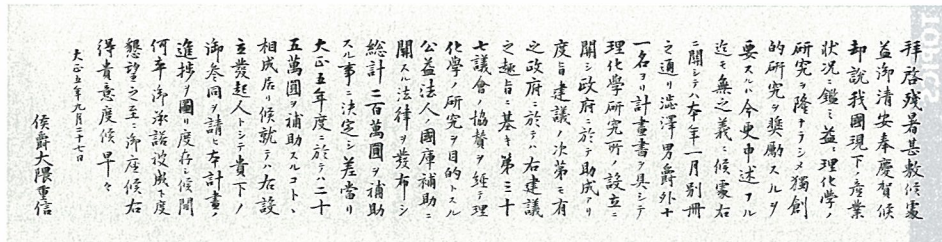 拝啓残暑甚敷候處
益御清安奉慶賀候
却說我國現下ノ産業
狀況ニ鑑ミ益〻理化學ノ
研究ヲ隆ナラシメ獨創
的硏究ヲ奬勵スルヲ
要スルハ今更申述フル
迄モ無之義ニ候處右
ニ關シテハ本年一月別冊
之通リ澁澤男爵外十
一名ヨリ計畫書ヲ具シテ
理化學硏究所ノ設立ニ
關シ政府ニ於テ助成アリ
度旨建議ノ次第モ有
之政府ニ於テハ右建議
之趣旨ニ基キ第三十
七議會ノ協賛ヲ經テ理
化學ノ硏究ヲ目的トスル
公益法人ノ國庫補助ニ
關スル法律ヲ發布シ
総計二百萬圓ヲ補助
スル事ニ決定シ差當リ
大正五年度ニ於テハ二十
五萬圓ヲ補助スルコトヽ
相成居リ候就テハ右設
立發起人トシテ貴下ノ
御参同ヲ請ヒ本計畫ノ
進捗ヲ圖リ度存シ候間
何卒御承諾被成下度
懇望之至ニ御座候右
得貴意度候早々
大正五年九月二十七日
侯爵大隈重信
TOPIC2